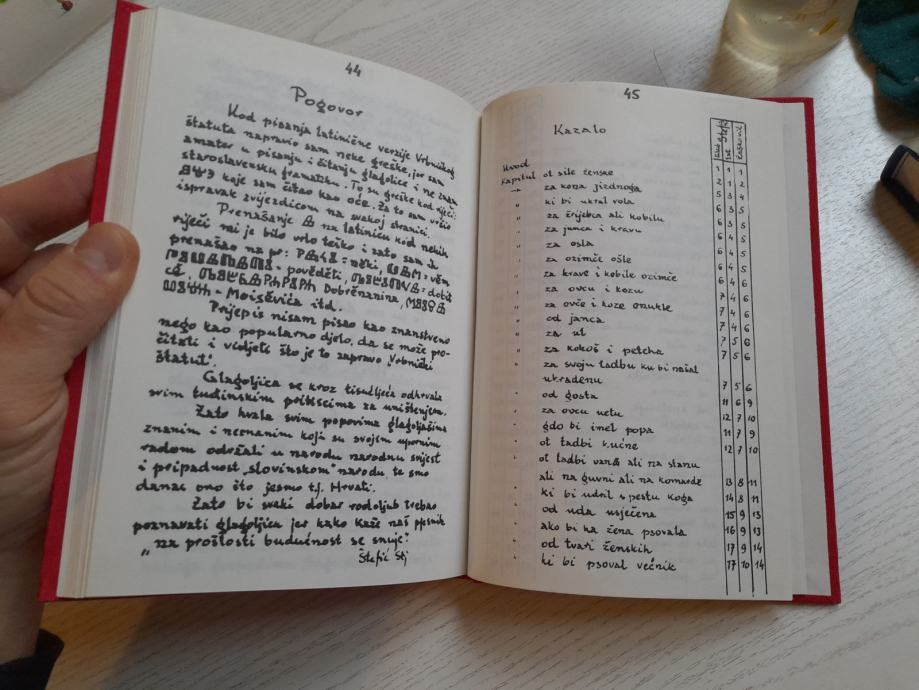 44
Pogovor
Kod pisanja latinične verzije Vrbničkog
štatuta napravio sam neke greške, jer sam
amater u pisanju i čitanju glagoljice i ne znam
staroslavensku gramatiku. To su greške kod riječi:
koje sam čitao kao oće. Za to sam vršio
ispravak zvjezdicom na svakoj stranici.
Prenašanje na latinicu kod nekih
riječi mi je bilo vrlo teško i zato sam ih
prenašao na pr: = něki, = věm
- pověděti, = dobit
će, Dobrěnanina,
- Moisěvića itd.
Prijepis nisam pisao kao znanstveno
nego kao popularno djelo, da se može pro-
čitati i vidjeti što je to zapravo „Vrbnički
štatut".
Glagoljica se kroz tisućljeća odhrvala
svim tuđinskim pritiscima za uništenjem.
Zato hvala svim popovima glagoljašima
znanim i neznanim koji su svojim upornim
radom održali u narodu narodnu svijest
i pripadnost „slovinskom" narodu te smo
danas ono što jesmo tj. Hrvati.
Zato bi svaki dobar rodoljub trebao
poznavati glagoljicu jer kako kaže naš pjesnik
„na prošlosti budućnost se snuje".
Štefić Stj
45
Kazalo
Uvod 1 1 1
Kapitul ot sile ženske 2 1 2
-"- za konja jizdnoga 5 3 5
" ki bi ukral vola 6 3 5
" za žrijebca ali kobilu 6 3 5
" za junca i kravu 6 3 5
" za osla 6 4 5
" za ozimič ošle 6 4 5
" za krave i kobile ozimče 6 4 6
" za ovcu i kozu 7 4 6
" za ovče i koze onukle 7 4 6
" od janca 7 4 6
" za ul 7 5 6
" za kokoš i petcha 7 5 6
" za svoju tadbu ku bi našal
ukradenu 7 5 6
" od gosta 11 6 9
" za ovcu uetu 12 7 10
" gdo bi imel popa 11 7 9
" ot tadbi kućne 12 7 10
" ot tadbi vaně ali na stanu
ali na guvni ali na komarde 13 8 11
" ki bi udril s pestu koga 14 8 11
" od uda usječena 15 9 13
" ako bi ka žena psovala 16 9 13
" od tvari ženskih 17 9 14
" ki bi psoval većnik 17 10 14